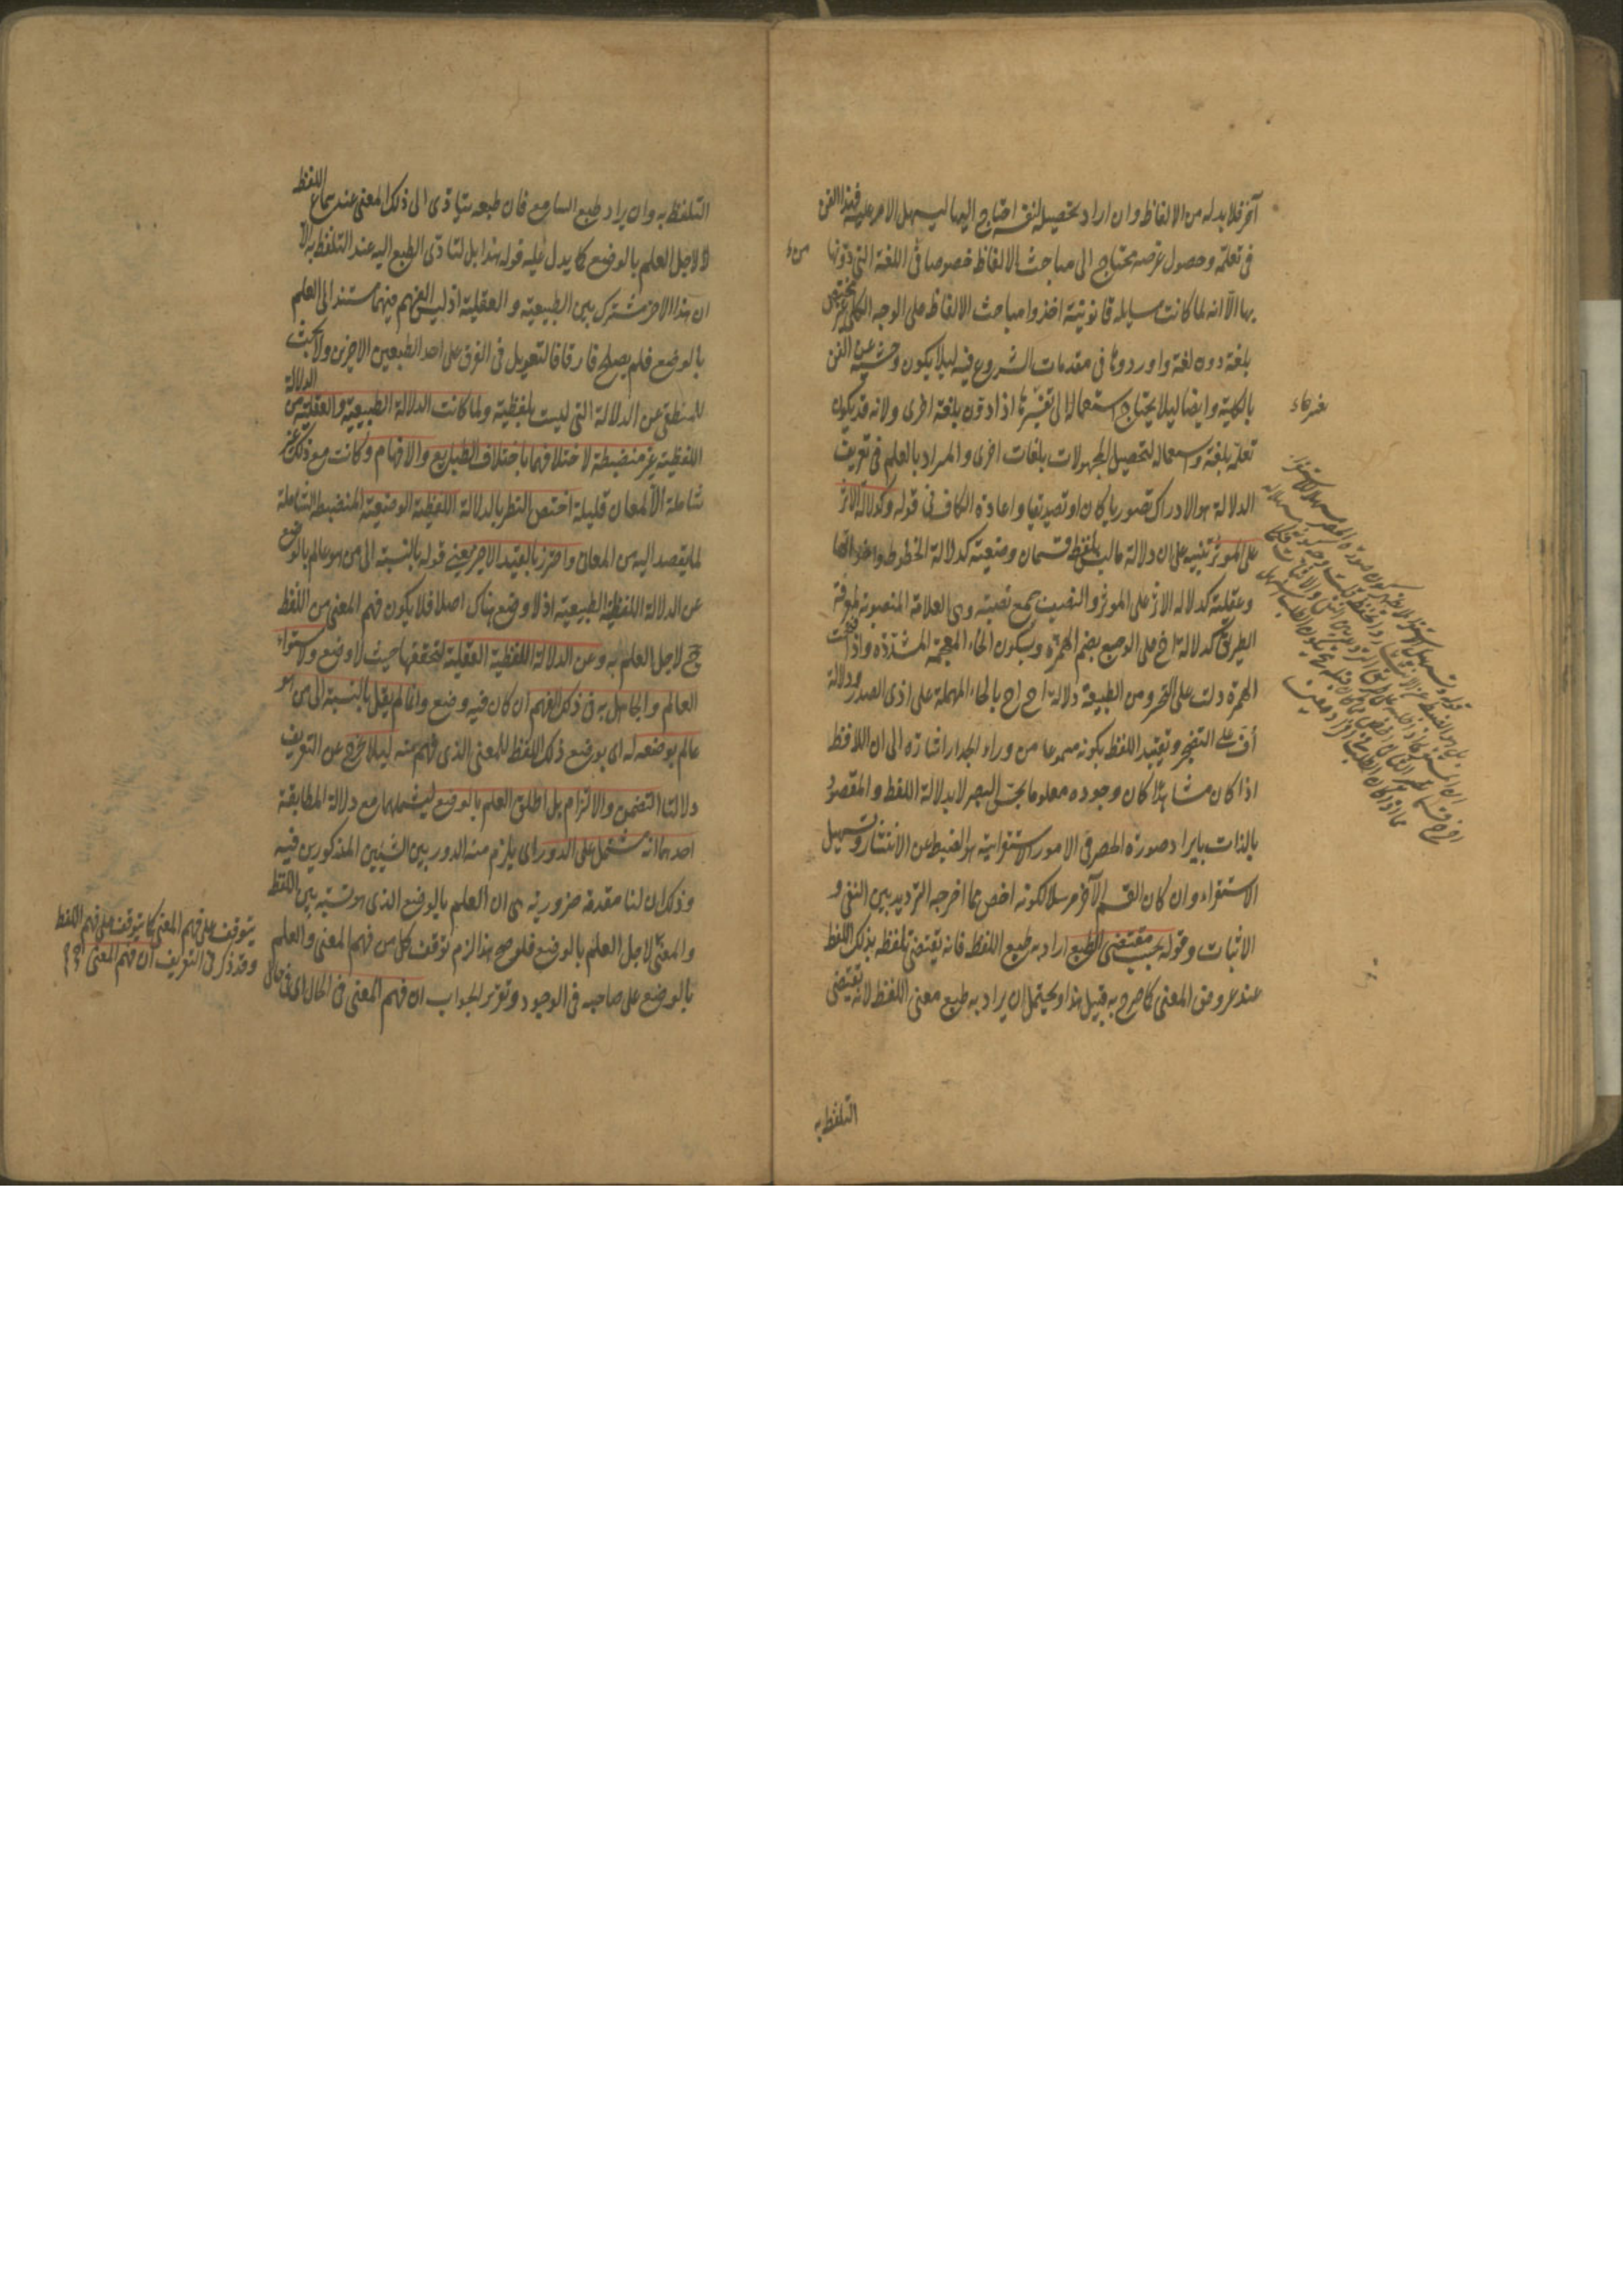 آخر فلا بد له من الالفاظ وان اراد تحصيله لنفسه احتاج اليها ليسهل الامر عليه فهذا الفن
في تعلمه وحصول غرضه يحتاج الى مباحث الالفاظ خصوصا في اللغة التي دونها
بها الا انه لما كانت مسايله قانونية اخذوا مباحث الالفاظ على الوجه الكلي غير مختص
بلغة دون لغة واوردوها في مقدمات الشروع فيه ليلا يكون وحشية عن الفن
بالكلية وايضا ليلا يحتاج استعماله الى تغيير ما اذا دون بلغة اخرى ولانه قد يكون
تعلمه بلغة واستعماله لتحصيل المجهولات بلغات اخرى والمراد بالعلم في تعريف
الدلالة هو الادراك تصوريا كان او تصديقيا واعادة الكاف في قوله وكدلالة الاثر
على الموثر تنبيه على ان دلالة ما ليس بلفظ قسمان وضعية كدلالة الخطوط واخواتها
وعقلية كدلالة الاثر على الموثر والنصب جمع نصبة وهي العلامة المنصوبة لمعرفة
الطريق كدلالة اخ على الوجع بضم الهمزة وبسكون الخاء المعجمة المشددة واذا فتحت
الهمزة دلت على التحسر ومن الطبيعة دلالة اح اح بالحاء المهملة على اذى الصدر ودلالة
أف على التضجر وتقييد اللفظ بكونه مسموعا من وراء الجدار اشارة الى ان اللافظ
اذا كان مشاهدا كان وجوده معلوما بحس البصر لا بدلالة اللفظ والمقصود
بالذات بايراد صورة الحصر في الامور الاستقرائية هو الضبط عن الانتشار وتسهيل
الاستقراء وان كان القسم الآخر مرسلا لكونه اخص مما اخرجه الترديد بين النفي و
الاثبات وقوله بحسب مقتضى الطبع اراد به طبع اللافظ فانه يقتضي تلفظه بذلك اللفظ
عند عروض المعنى كما صرح به قبيل هذا ويحتمل ان يراد به طبع معنى اللفظ لانه يقتضي
التلفظ به
التلفظ به وان يراد طبع السامع فان طبعه يتادى الى ذلك المعنى عند سماع اللفظ
لا لاجل العلم بالوضع كما يدل عليه قوله هذا بل لتادى الطبع اليه عند التلفظ به الا
ان هذا الاخر مشترك بين الطبيعية والعقلية اذ ليس الفهم فيهما مستندا الى العلم
بالوضع فلم يصلح فارقا فالتعويل في الفرق على احد الطبعين الاخرين ولا بحث
للمنطقي عن الدلالة التي ليست بلفظية ولما كانت الدلالة الطبيعية والعقلية من الدلالة
اللفظية غير منضبطة لاختلافهما باختلاف الطبايع والافهام وكانت مع ذلك غير
شاملة الا لمعان قليلة اختص النظر بالدلالة اللفظية الوضعية المنضبطة الشاملة
لما يقصد اليه من المعاني واحترز بالقيد الاخير يعني قوله بالنسبة الى من هو عالم بالوضع
عن الدلالة اللفظية الطبيعية اذ لا وضع هناك اصلا فلا يكون فهم المعنى من اللفظ
ح لاجل العلم به وعن الدلالة اللفظية العقلية لتحققها حيث لا وضع ولاستواء
العالم والجاهل به في ذلك الفهم ان كان فيه وضع وانما لم يقل بالنسبة الى من هو
عالم بوضعه له اى بوضع ذلك اللفظ للمعنى الذي فهم منه ليلا يخرج عن التعريف
دلالتا التضمن والالتزام بل اطلق العلم بالوضع ليشملهما مع دلالة المطابقة
احدهما انه مشتمل على الدور اى يلزم منه الدور بين الشيئين المذكورين فيه
وذلك ان لنا مقدمة ضرورية هي ان العلم بالوضع الذي هو نسبة بين اللفظ
والمعنى لاجل العلم بالوضع فلو صح هذا لزم توقف كل من فهم المعنى والعلم
بالوضع على صاحبه في الوجود وتقرير الجواب ان فهم المعنى في الحال اى في حال
يتوقف على فهم المعنى كما يتوقف على فهم اللفظ
وقد ذكر في التعريف ان فهم المعنى